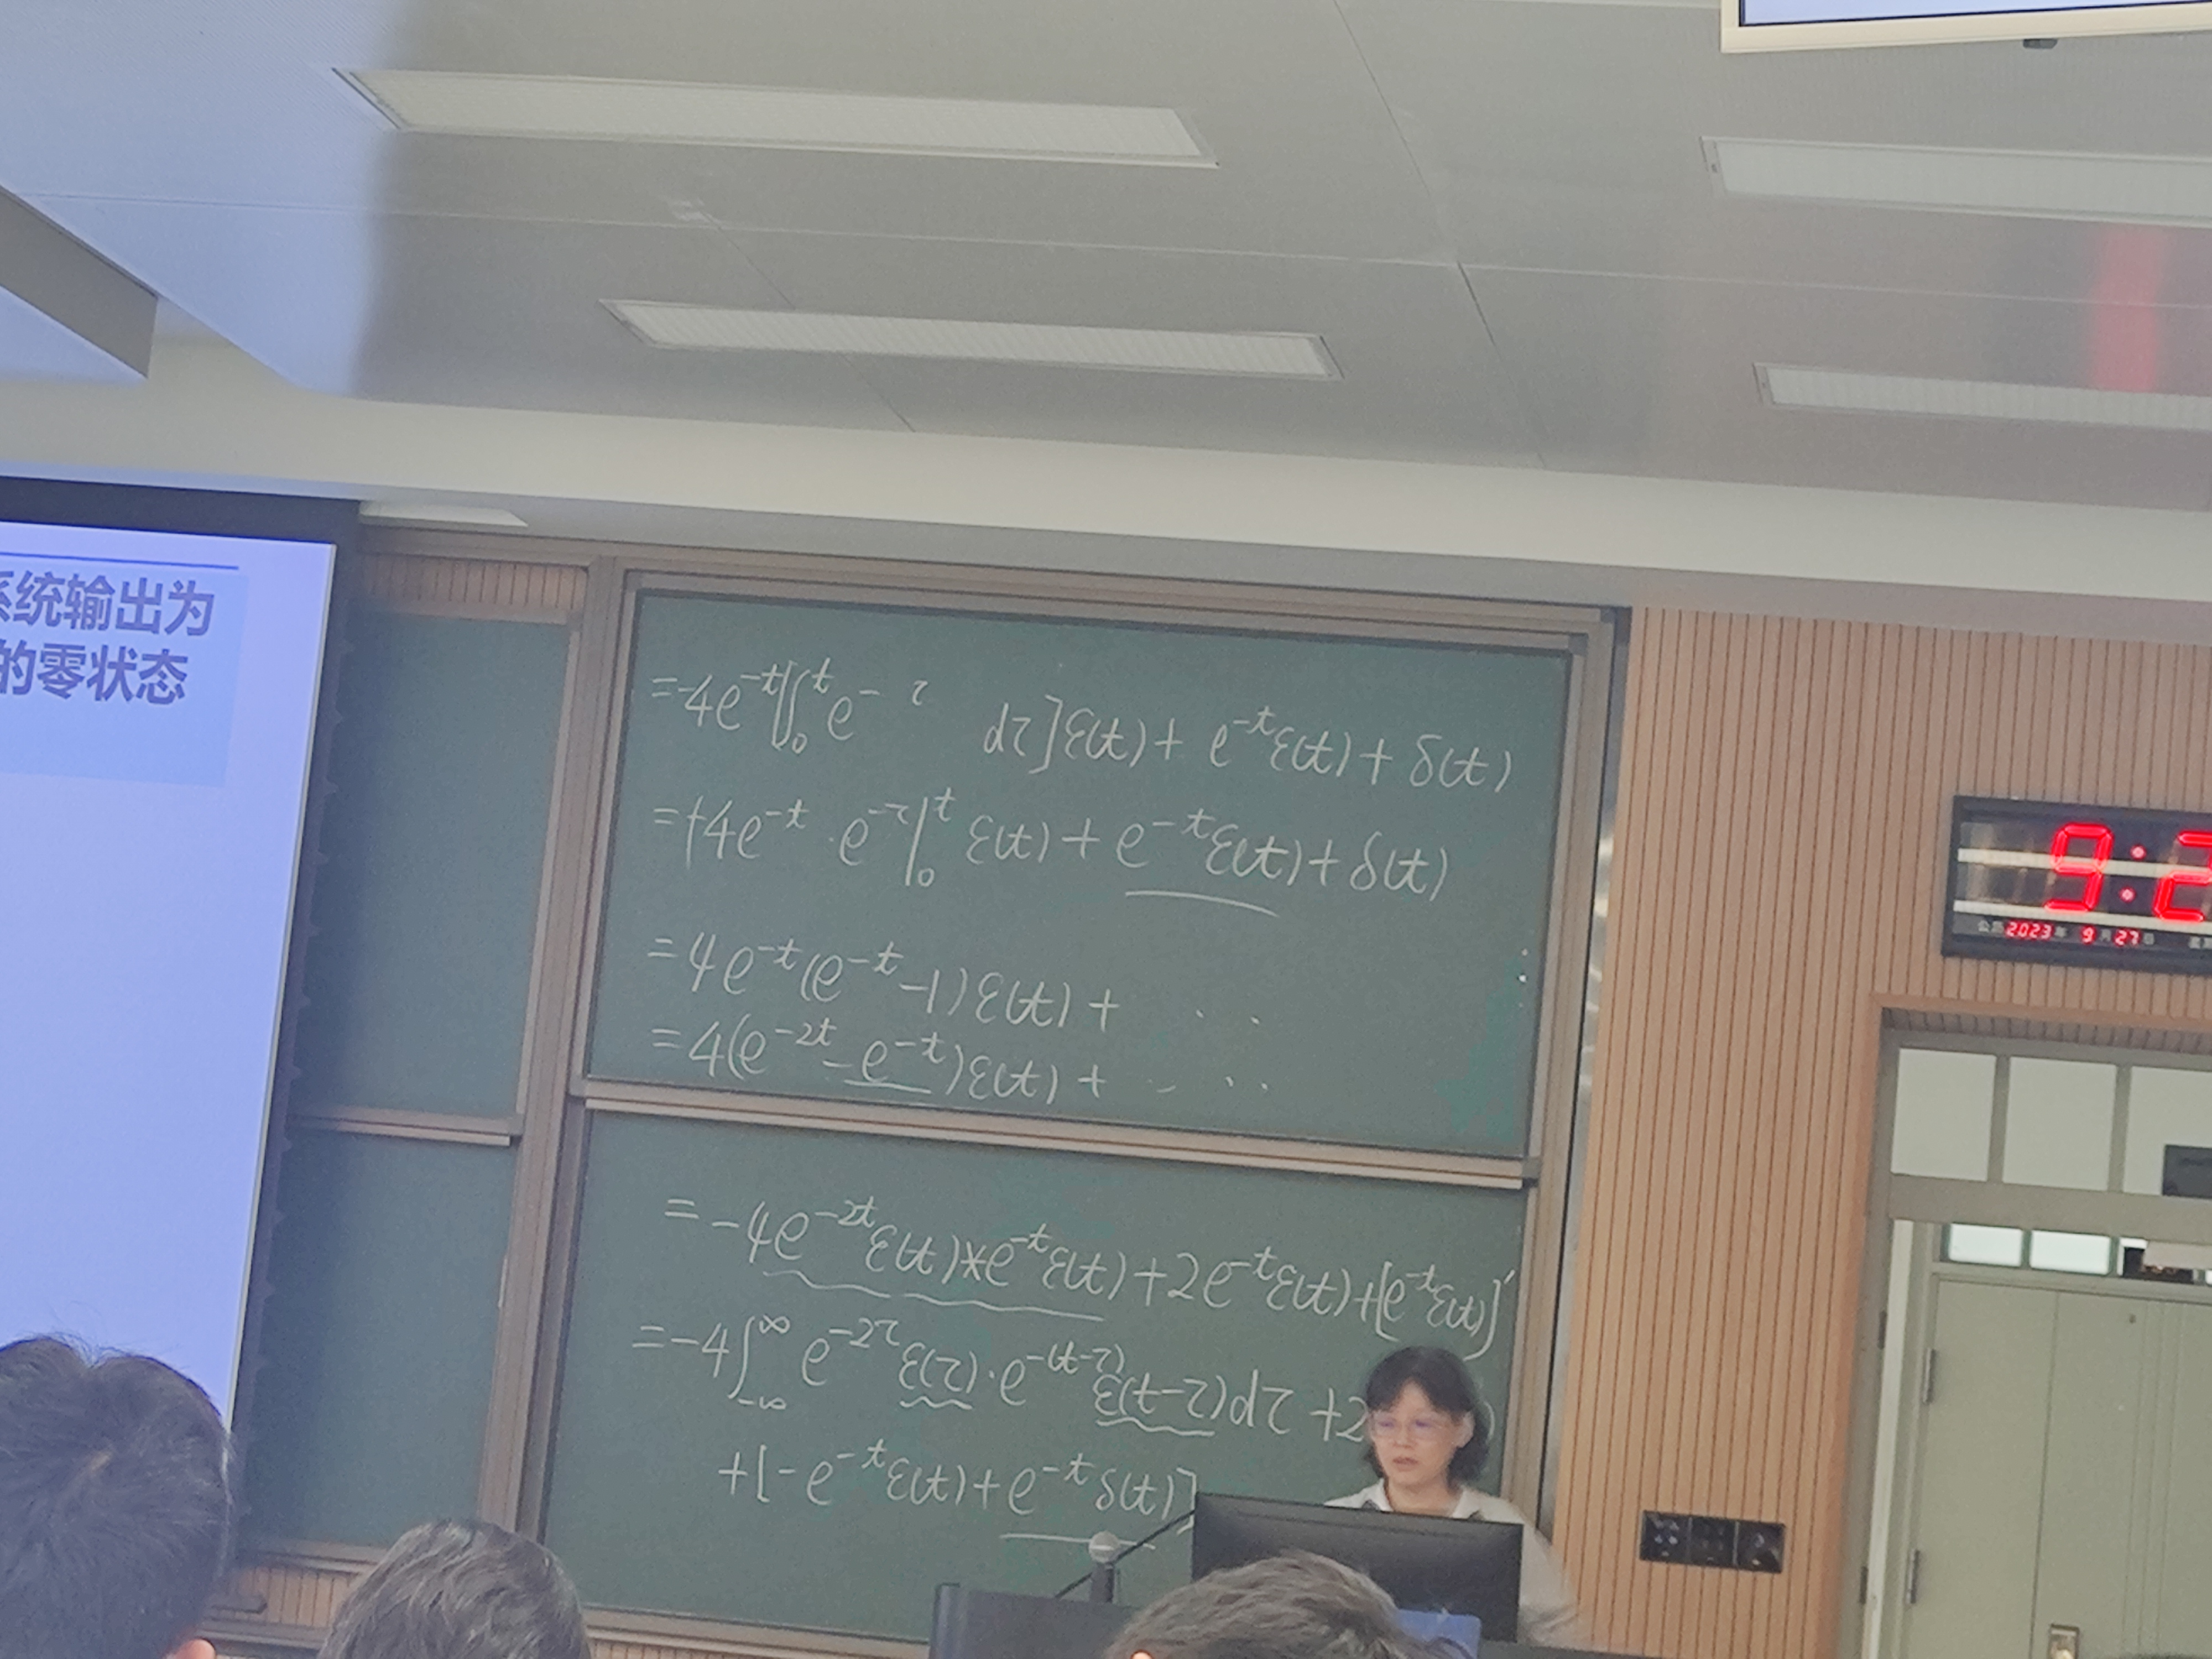 系统输出为
的零状态
=-4e^{-t}[∫_0^t e^{-τ} dτ]ε(t)+ e^{-t}ε(t)+ δ(t)
=+4e^{-t}·e^{-τ}|_0^t ε(t)+e^{-t}ε(t)+δ(t)
=4e^{-t}(e^{-t}-1)ε(t)+ · · ·
=4(e^{-2t}-e^{-t})ε(t)+ · · ·
=-4e^{-2t}ε(t)*e^{-t}ε(t)+2e^{-t}ε(t)+[e^{-t}ε(t)]'
=-4∫_{-∞}^{∞} e^{-2τ}ε(τ)·e^{-(t-τ)}ε(t-τ)dτ +2 )
+[-e^{-t}ε(t)+e^{-t}δ(t)]
9:2
公历2023年 9月27日